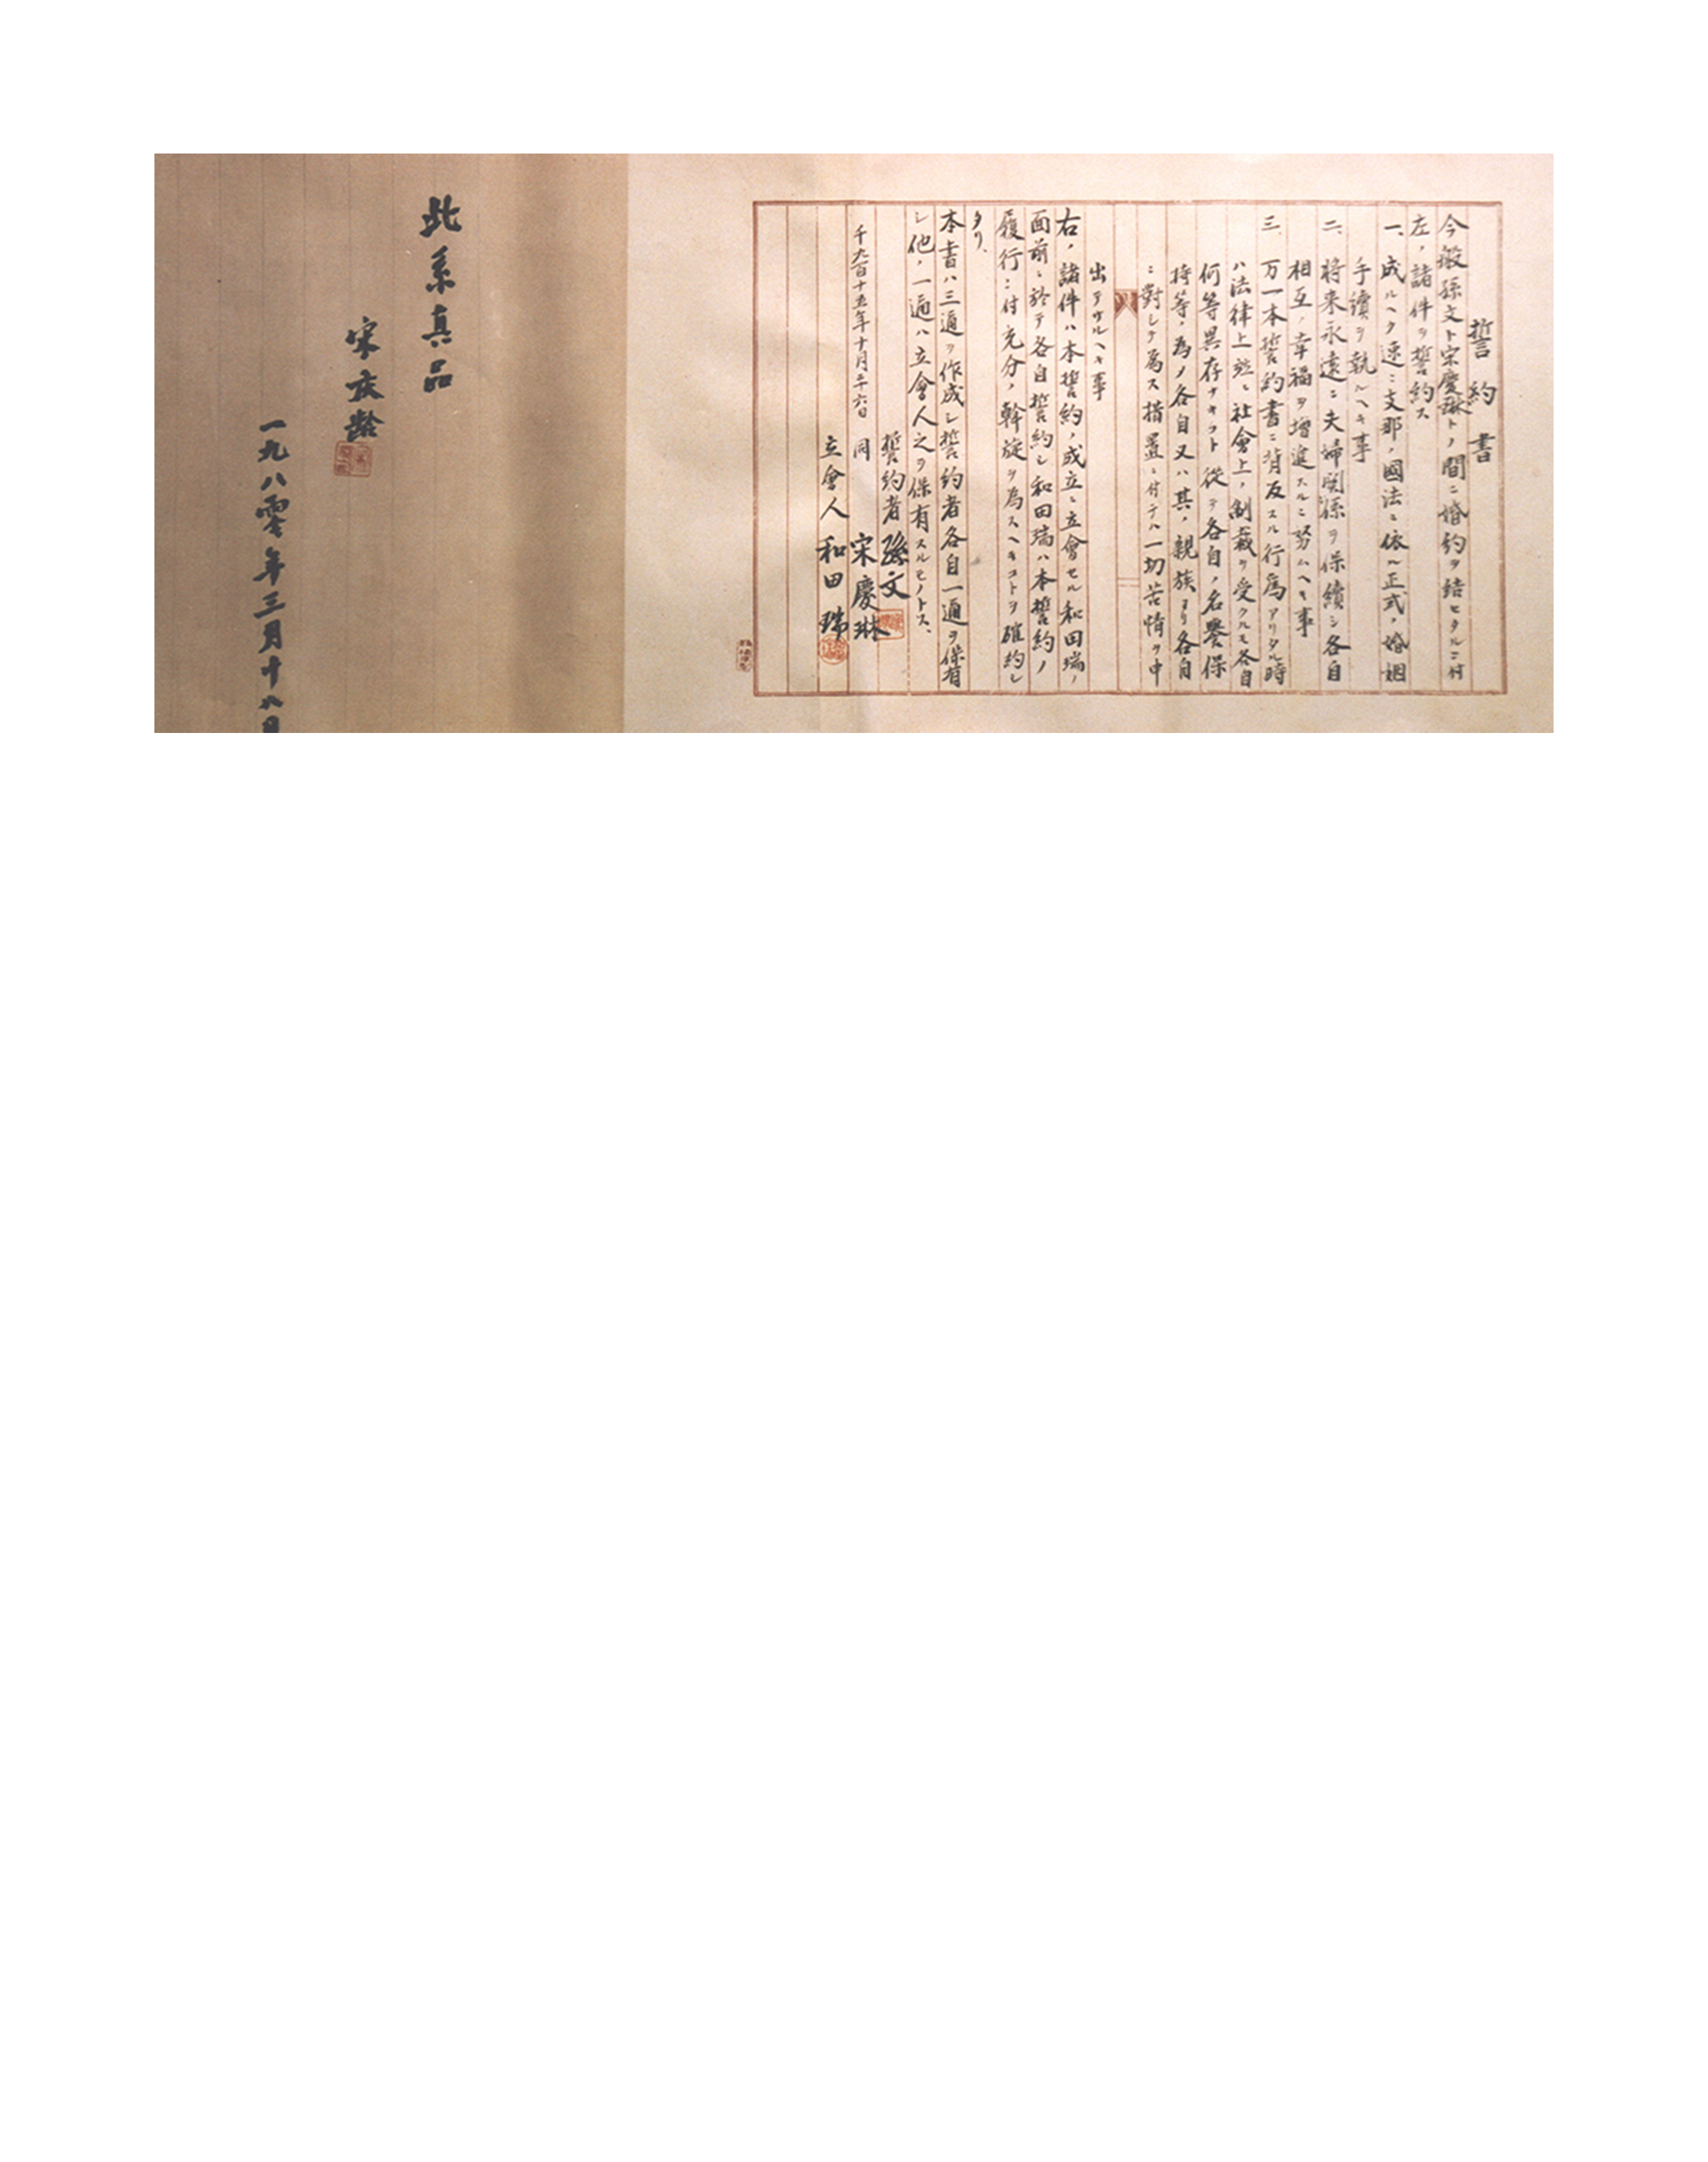 誓約書
今般孫文ト宋慶琳トノ間ニ婚約ヲ結ヒタルニ付
左ノ諸件ヲ誓約ス
一、成ルヘク速ニ支那ノ國法ニ依ル正式ノ婚姻
手續ヲ執ルヘキ事
二、将来永遠ニ夫婦関係ヲ保續シ各自
相互ノ幸福ヲ増進スルニ努ムヘキ事
三、万一本誓約書ニ背反スル行爲アリタル時
ハ法律上竝ニ社會上ノ制裁ヲ受クルモ各自
何等異存ナキコト従テ各自ノ名譽保
持等ノ為メ各自又ハ其ノ親族ヨリ各自
ニ對シテ為ス措置ニ付テハ一切苦情ヲ申
出テサルヘキ事
右ノ諸件ハ本誓約ノ成立ニ立會セル和田瑞ノ
面前ニ於テ各自誓約シ和田瑞ハ本誓約ノ
履行ニ付充分ノ斡旋ヲ為スヘキコトヲ確約シ
タリ、
本書ハ三通ヲ作成シ誓約者各自一通ヲ保有
シ他ノ一通ハ立會人之ヲ保有スルモノトス、
誓約者 孫文
千九百十五年十月二十六日 同 宋慶琳
立會人 和田瑞
此系真品
宋庆龄
一九八零年三月十八日